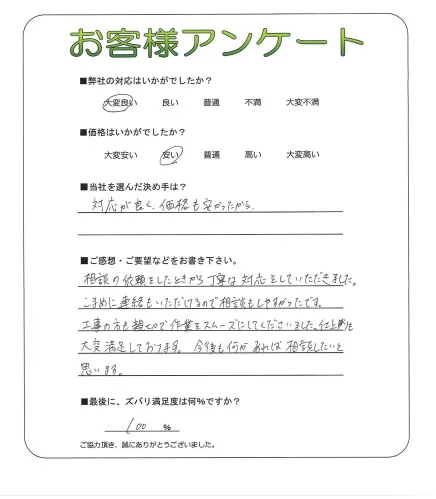 お客様アンケート
■弊社の対応はいかがでしたか？
大変良い　良い　普通　不満　大変不満
■価格はいかがでしたか？
大変安い　安い　普通　高い　大変高い
■当社を選んだ決め手は？
対応が良く、価格も安かったから。
■ご感想・ご要望などをお書き下さい。
相談の依頼をしたときから丁寧な対応をしていただきました。
こまめに連絡もいただけるので相談もしやすかったです。
工事の方も親切で作業をスムーズにしてくださいました。仕上がりも
大変満足しております。今後も何かあれば相談したいと
思います。
■最後に、ズバリ満足度は何％ですか？
100 %
ご協力頂き、誠にありがとうございました。